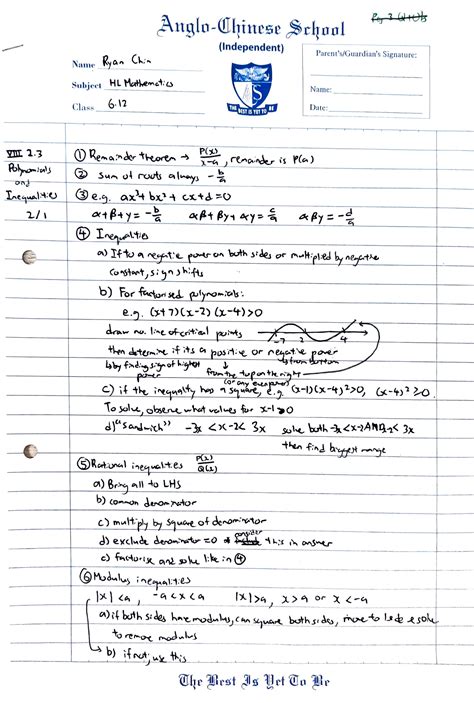 Anglo-Chinese School
(Independent)
Parent's/Guardian's Signature:
Name Ryan Chin
Subject HL Mathematics
Class 6.12
Name:
Date:
THE BEST IS YET TO BE
VIII 2.3
Polynomials
and
Inequalities
2/1
① Remainder theorem → P(x)/x-a, remainder is P(a)
② sum of roots always -b/a
③ e.g. ax³ + bx² + cx + d = 0
α+β+γ = -b/a   αβ+βγ+αγ = c/a   αβγ = -d/a
④ Inequalities
a) If to a negative power on both sides or multiplied by negative
constant, sign shifts
b) For factorised polynomials:
e.g. (x+7)(x-2)(x-4)>0
draw no. line of critical points
-7 2 4
then determine if its a positive or negative power
↳ by finding sign of highest
power
from the top on the right
from bottom
(or any even power)
c) if the inequality has a square, e.g. (x-1)(x-4)²>0, (x-4)² ≥0.
To solve, observe what values for x-1>0
d) "sandwich" -3x < x-2 < 3x solve both -3x<x-2 AND x-2< 3x
then find biggest range
⑤ Rational inequalities P(x)/Q(x)
a) Bring all to LHS
b) common denominator
c) multiply by square of denominator
d) exclude denominator =0 consider this in answer
e) factorise and solve like in ④
⑥ Modulus inequalities
|x| < a, -a < x < a   |x|>a, x>a or x<-a
a) if both sides have modulus, can square both sides, move to 1 side & solve
to remove modulus
b) if not, use this
The Best Is Yet To Be